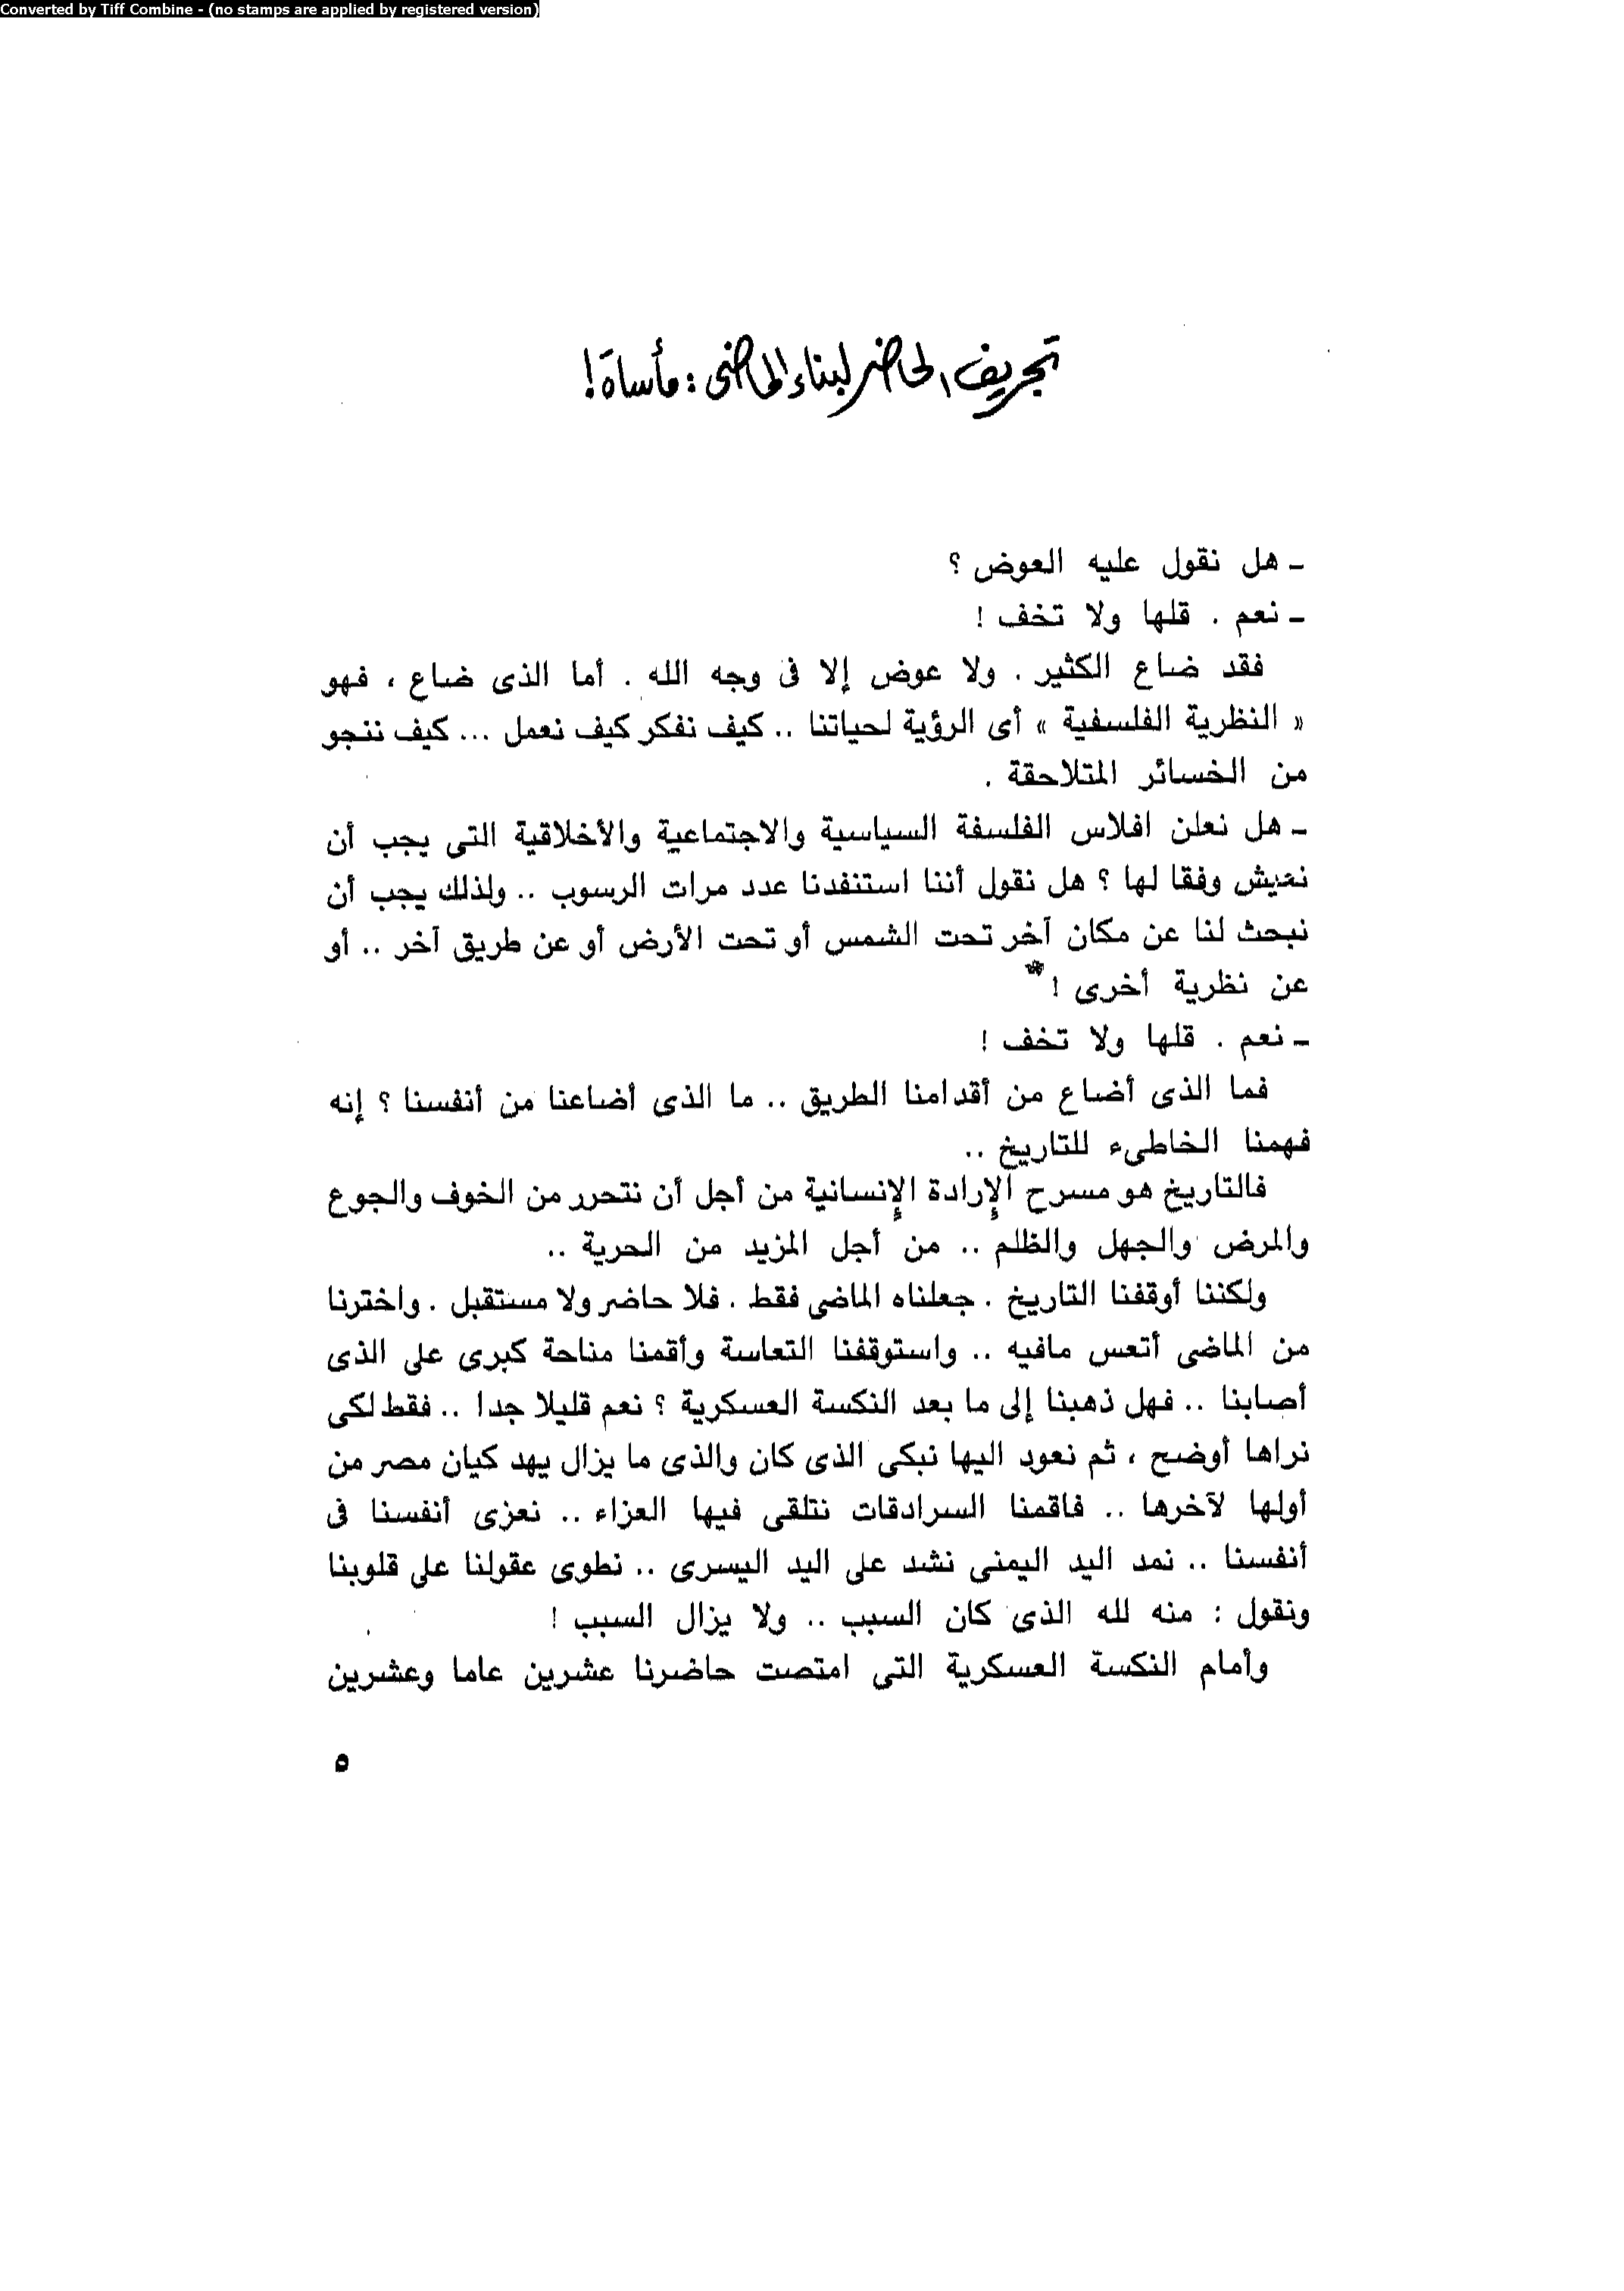 Converted by Tiff Combine - (no stamps are applied by registered version)
تجريف الحاضر لبناء الماضى : مأساة !
ـ هل نقول عليه العوض ؟
ـ نعم . قلها ولا تخف !
فقد ضاع الكثير . ولا عوض إلا فى وجه الله . أما الذى ضاع ، فهو
« النظرية الفلسفية » أى الرؤية لحياتنا .. كيف نفكر كيف نعمل ... كيف ننجو
من الخسائر المتلاحقة .
ـ هل نعلن افلاس الفلسفة السياسية والاجتماعية والأخلاقية التى يجب أن
نعيش وفقا لها ؟ هل نقول أننا استنفدنا عدد مرات الرسوب .. ولذلك يجب أن
نبحث لنا عن مكان آخر تحت الشمس أو تحت الأرض أو عن طريق آخر .. أو
عن نظرية أخرى ! *
ـ نعم . قلها ولا تخف !
فما الذى أضاع من أقدامنا الطريق .. ما الذى أضاعنا من أنفسنا ؟ إنه
فهمنا الخاطىء للتاريخ ..
فالتاريخ هو مسرح الإرادة الإنسانية من أجل أن نتحرر من الخوف والجوع
والمرض والجهل والظلم .. من أجل المزيد من الحرية ..
ولكننا أوقفنا التاريخ . جعلناه الماضى فقط . فلا حاضر ولا مستقبل . واخترنا
من الماضى أتعس مافيه .. واستوقفنا التعاسة وأقمنا مناحة كبرى على الذى
أصابنا .. فهل ذهبنا إلى ما بعد النكسة العسكرية ؟ نعم قليلا جدا .. فقط لكى
نراها أوضح ، ثم نعود اليها نبكى الذى كان والذى ما يزال يهد كيان مصر من
أولها لآخرها .. فاقمنا السرادقات نتلقى فيها العزاء .. نعزى أنفسنا فى
أنفسنا .. نمد اليد اليمنى نشد على اليد اليسرى .. نطوى عقولنا على قلوبنا
ونقول : منه لله الذى كان السبب .. ولا يزال السبب !
وأمام النكسة العسكرية التى امتصت حاضرنا عشرين عاما وعشرين
٥